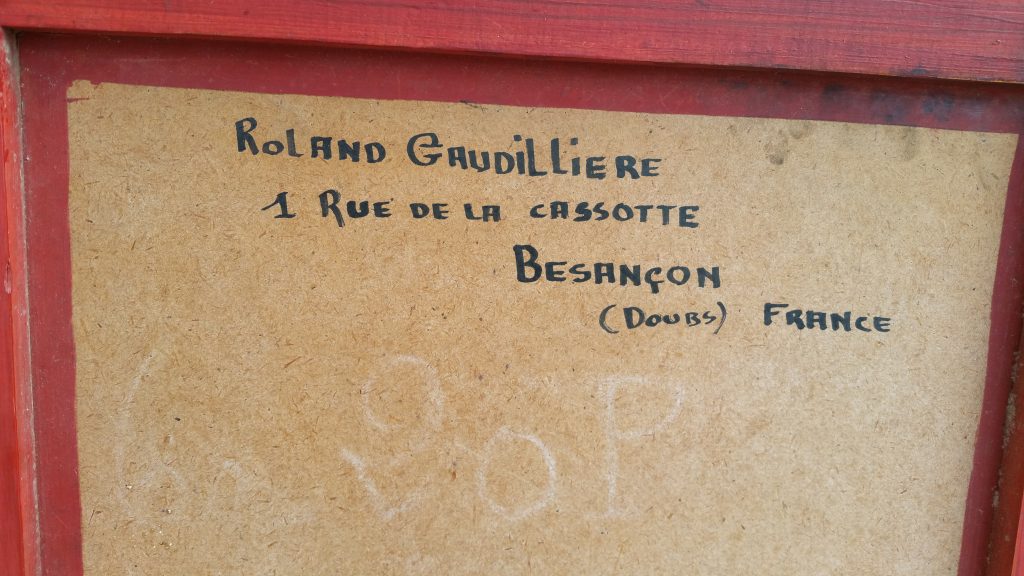 Roland Gaudilliere
1 Rue de la Cassotte
Besançon
(Doubs) France